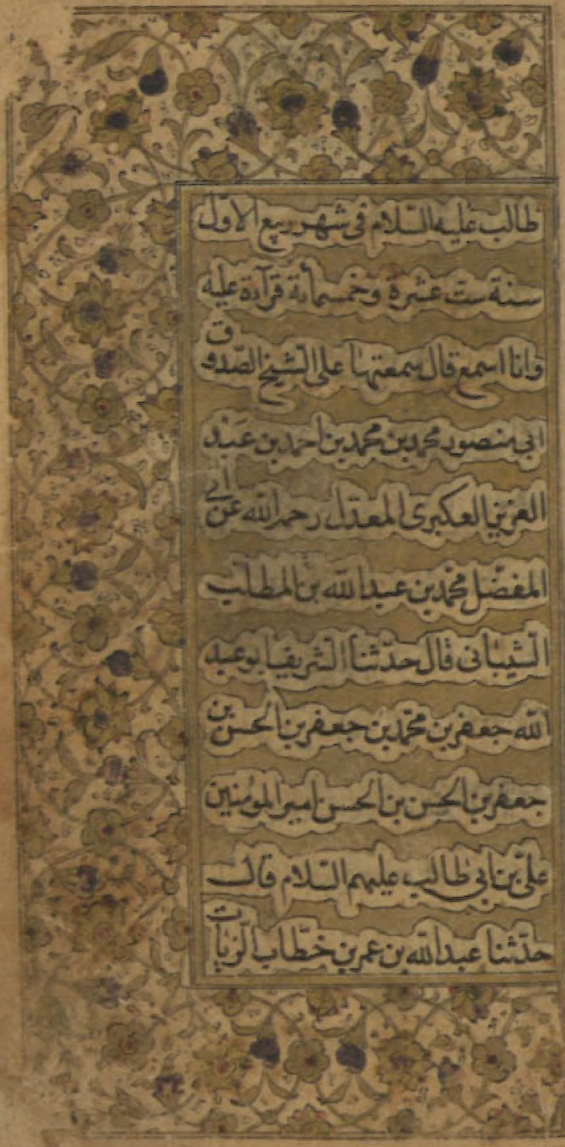 طالب عليه السّلام فى شهر ربيع الاول
سنة ستّ عشرة و خمسمائة قرآءة عليه
وانا اسمع قال سمعتها على الشّيخ الصّدوق
ابى منصور محمد بن محمد بن احمد بن عبد
العزيز العكبرى المعدّل رحمه الله عن ابى
المفضّل محمّد بن عبد الله بن المطلب
الشّيبانى قال حدّثنا الشّريف ابو عبد
الله جعفر بن محمّد بن جعفر بن الحسن بن
جعفر بن الحسن بن الحسن امير المؤمنين
علىّ بن ابى طالب عليهم السّلام قال
حدّثنا عبد الله بن عمر بن خطّاب الزيات